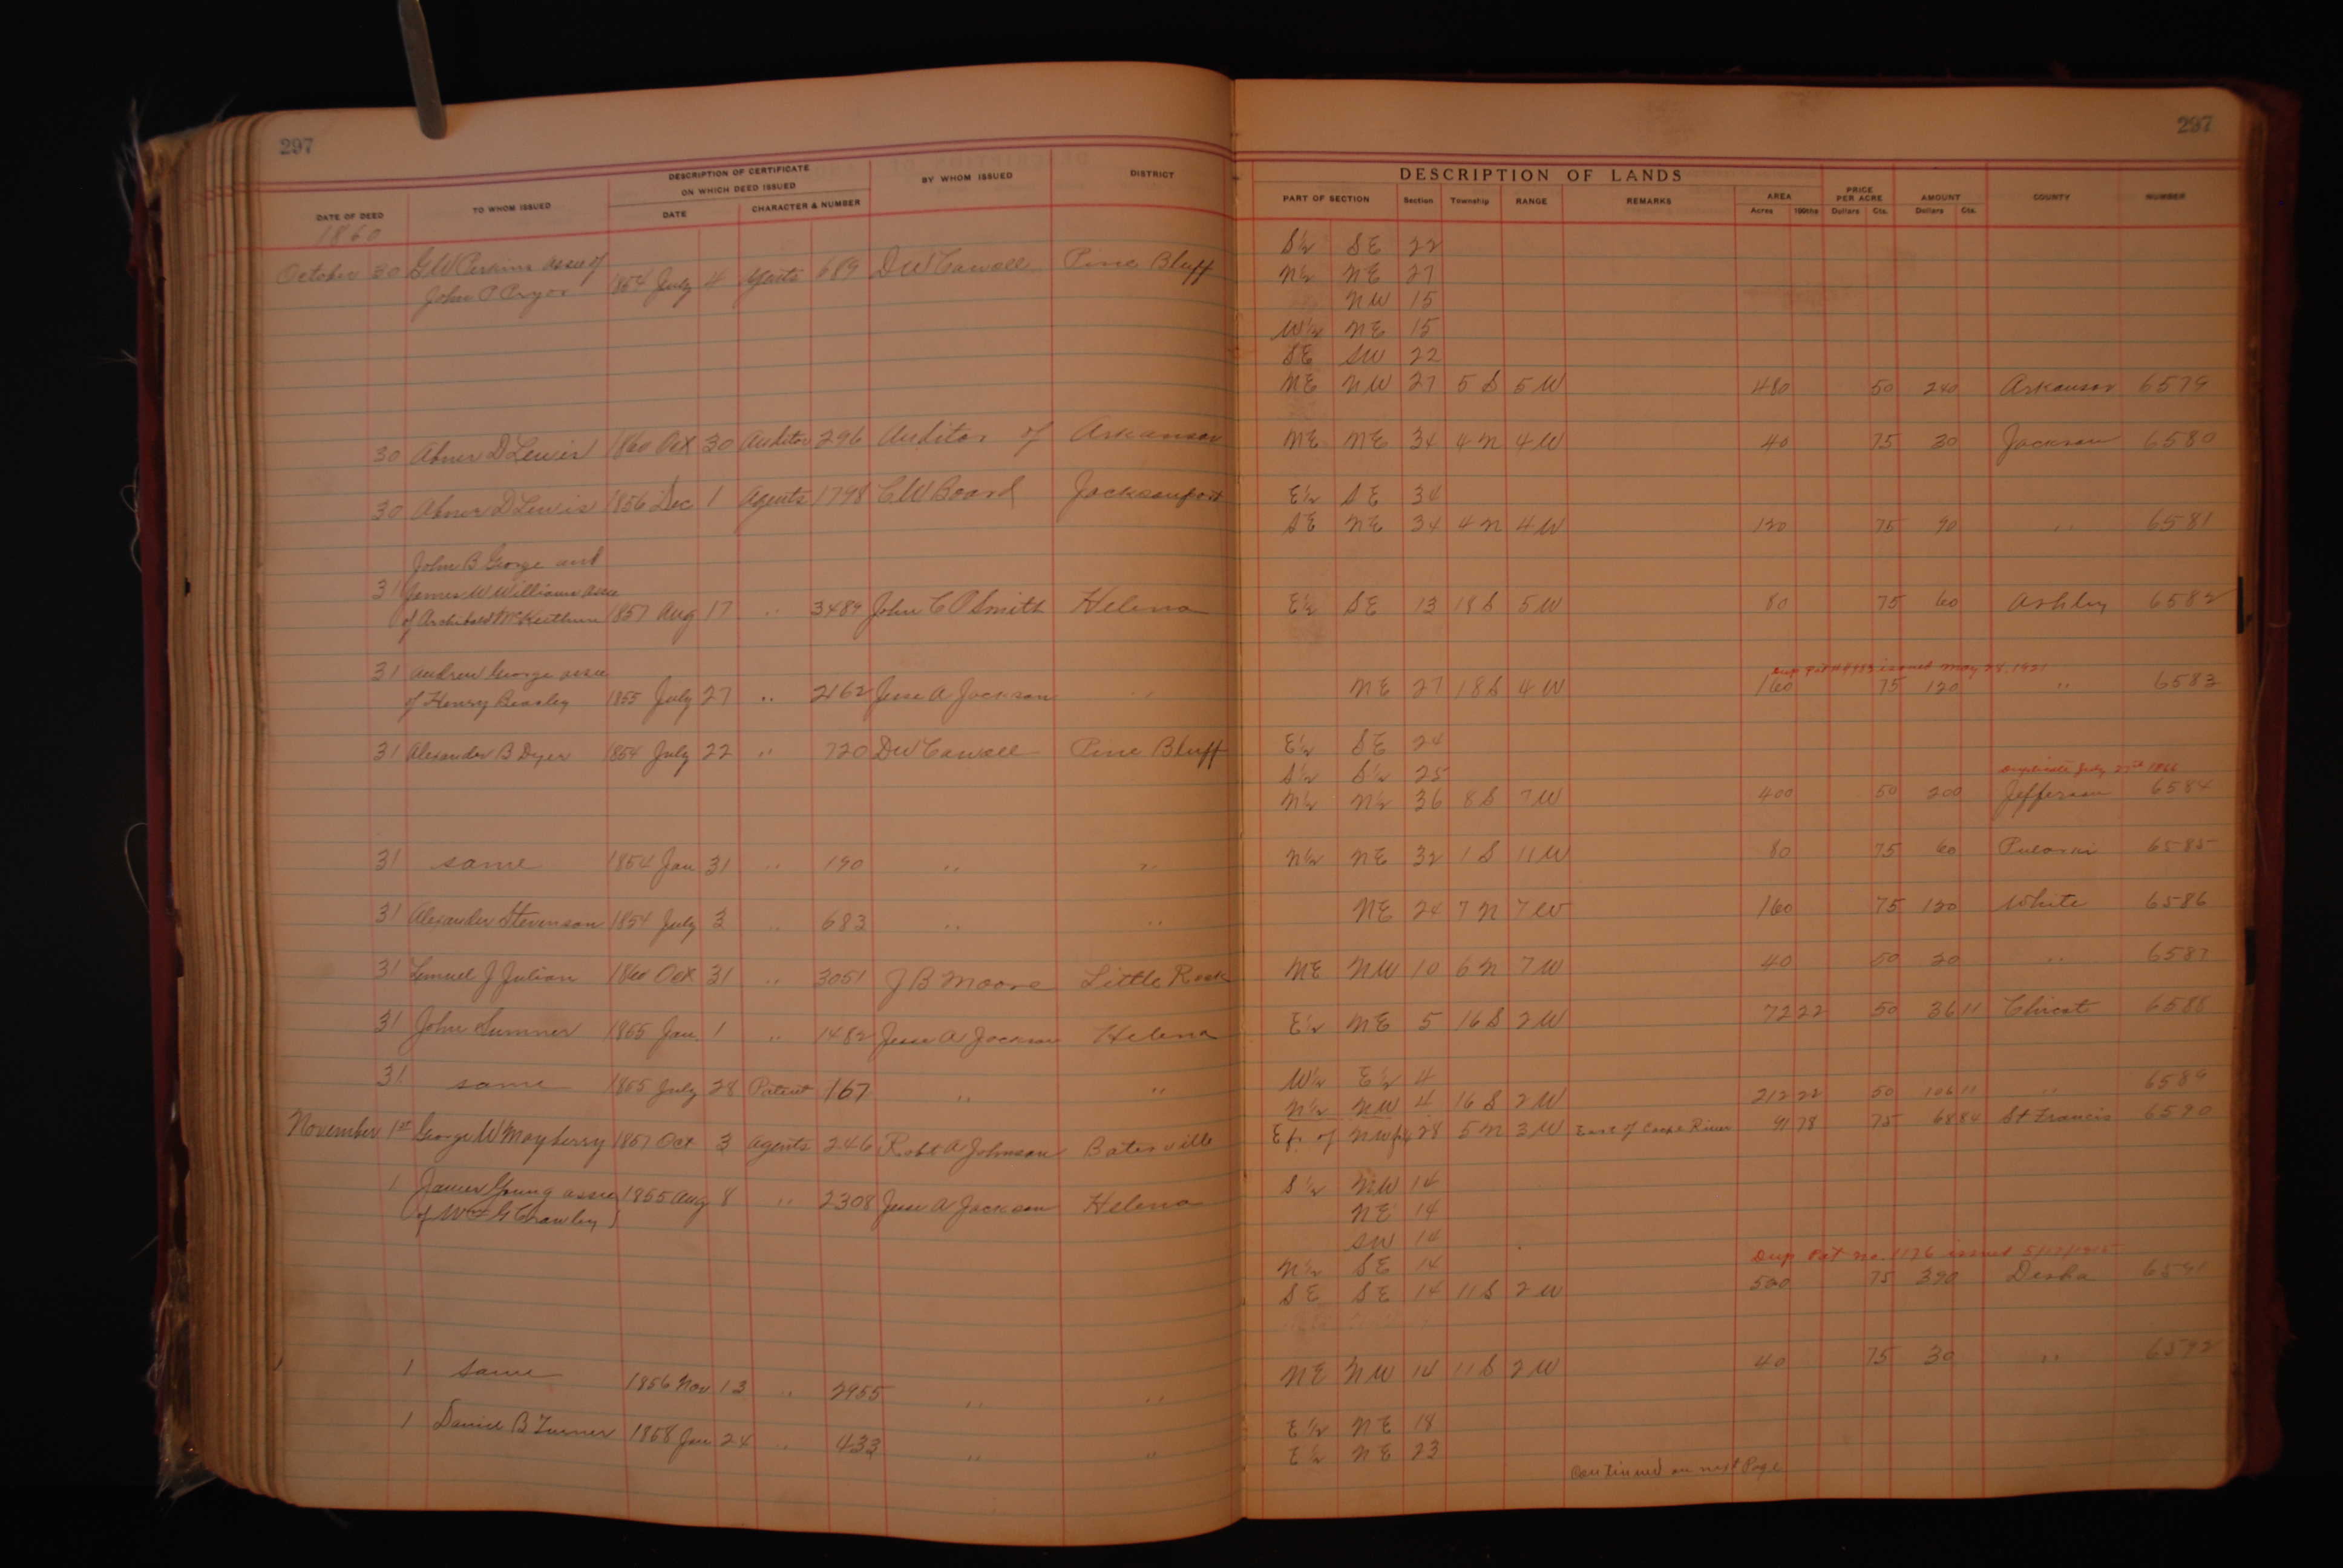 297
297
DESCRIPTION OF CERTIFICATE
ON WHICH DEED ISSUED
DATE OF DEED TO WHOM ISSUED DATE CHARACTER & NUMBER BY WHOM ISSUED DISTRICT
DESCRIPTION OF LANDS
PART OF SECTION Section Township RANGE REMARKS AREA Acres 100ths PRICE PER ACRE Dollars Cts. AMOUNT Dollars Cts. COUNTY NUMBER
1860
S½ SE 22
October 30 G W Perkins assee of
John P Pryor 1854 July 4 Agents 689 D W Carroll Pine Bluff N½ NE 27
NW 15
W½ NE 15
SE SW 22
NE NW 27 5 S 5 W 480 50 240 Arkansas 6579
30 Abner D Lewis 1860 Oct 30 Auditor 296 Auditor of Arkansas NE NE 34 4 N 4 W 40 75 30 Jackson 6580
30 Abner D Lewis 1856 Dec 1 Agents 1798 C W Board Jacksonport E½ SE 34
SE NE 34 4 N 4 W 120 75 90 " 6581
John B George and
31 James W Williams assee
of Archibald McKeithen 1857 Aug 17 " 3489 John C P Smith Helena E½ SE 13 18 S 5 W 80 75 60 Ashley 6582
31 Andrew George assee
issued May 28. 1921
of Henry Beasley 1855 July 27 " 2162 Jesse A Jackson " NE 27 18 S 4 W 160 75 120 " 6583
31 Alexander B Dyer 1854 July 22 " 720 D W Carroll Pine Bluff E½ SE 24
S½ S½ 25
Duplicate July 1866
N½ N½ 36 8 S 7 W 400 50 200 Jefferson 6584
31 same 1854 Jan 31 " 190 " " N½ NE 32 1 S 11 W 80 75 60 Pulaski 6585
31 Alexander Stevenson 1854 July 3 " 683 " " NE 24 7 N 7 W 160 75 120 White 6586
31 Lemuel J Julian 1860 Oct 31 " 3051 J B Moore Little Rock NE NW 10 6 N 7 W 40 50 20 " 6587
31 John Sumner 1855 Jan. 1 " 1482 Jesse A Jackson Helena E½ NE 5 16 S 2 W 72 22 50 36 11 Chicot 6588
31 same 1855 July 28 Patent 167 " " W½ E½ 4
N½ NW 4 16 S 2 W 212 22 50 106 11 " 6589
November 1st George W Mayberry 1857 Oct 3 Agents 246 Robt A Johnson Batesville E fr of NW fr¼ 28 5 N 3 W East of Cache River 91 78 75 68 84 St Francis 6590
1 James Young assee
of W F G Crawley 1855 Aug 8 " 2308 Jesse A Jackson Helena S½ NW 14
NE 14
SW 14
N½ SE 14
Dup Pat no. 1176 issued
SE SE 14 11 S 2 W 520 75 390 Desha 6591
1 same 1856 Nov 13 " 2955 " " NE NW 14 11 S 2 W 40 75 30 " 6592
1 Daniel B Turner 1858 Jan 24 " 433 " " E½ NE 18
E½ NE 23
Continued on next Page